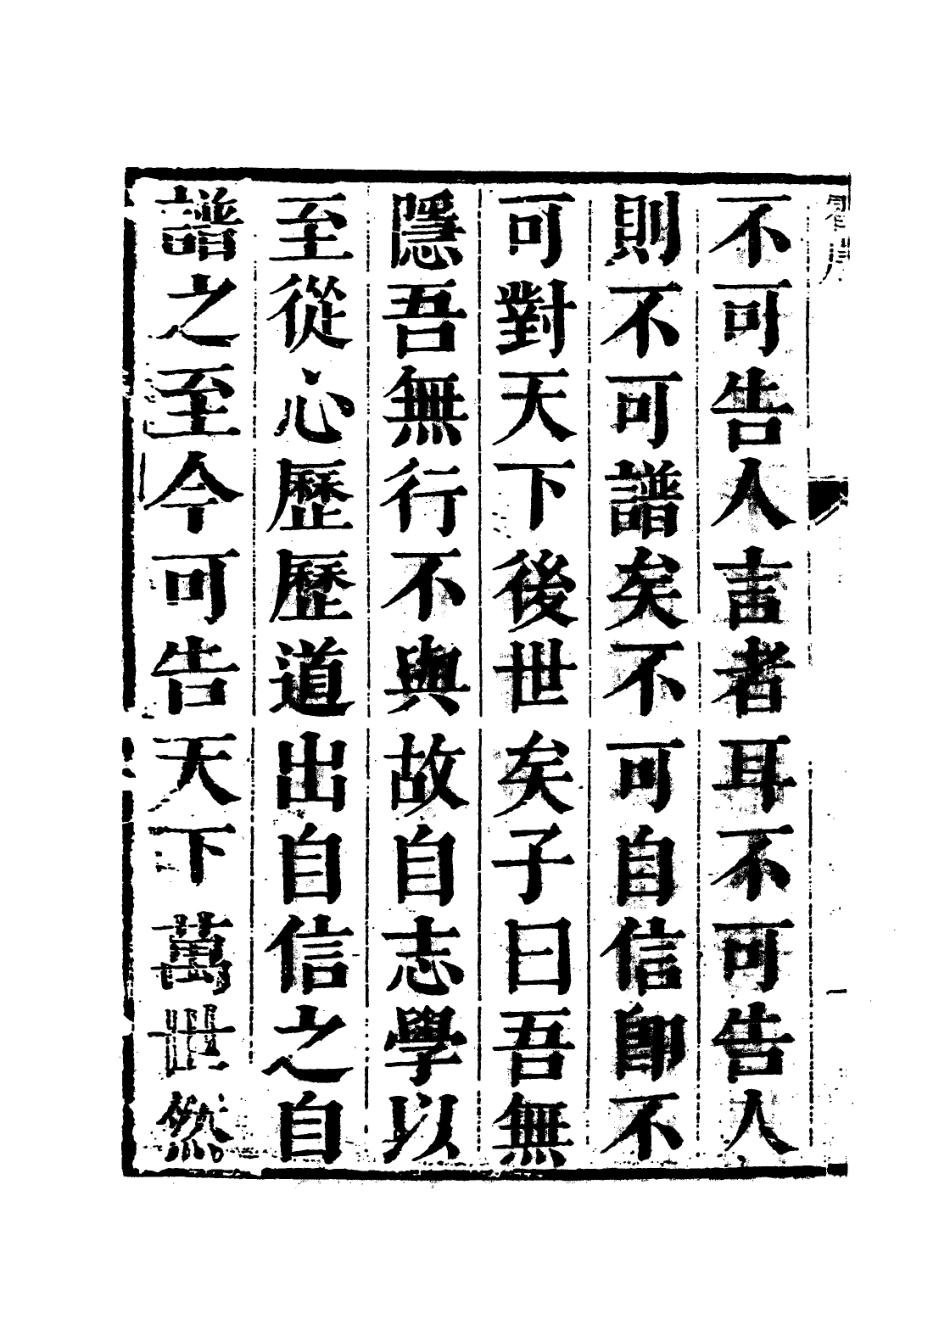 不可告人言者耳不可告人
則不可譜矣不可自信即不
可對天下後世矣子曰吾無
隱吾無行不與故自志學以
至從心歷歷道出自信之自
譜之至今可告天下萬世然